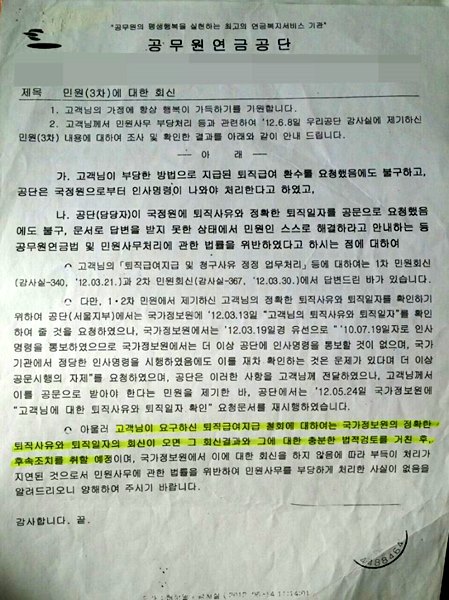 "공무원의 평생행복을 실현하는 최고의 연금복지서비스 기관"
공무원연금공단
제목 민원(3차)에 대한 회신
1. 고객님의 가정에 항상 행복이 가득하기를 기원합니다.
2. 고객님께서 민원사무 부당처리 등과 관련하여 '12.6.8일 우리공단 감사실에 제기하신
민원(3차) 내용에 대하여 조사 및 확인한 결과를 아래와 같이 안내 드립니다.
― 아 래 ―
가. 고객님이 부당한 방법으로 지급된 퇴직급여 환수를 요청했음에도 불구하고,
공단은 국정원으로부터 인사명령이 나와야 처리한다고 하였고,
나. 공단(담당자)이 국정원에 퇴직사유와 정확한 퇴직일자를 공문으로 요청했음
에도 불구, 문서로 답변을 받지 못한 상태에서 민원인 스스로 해결하라고 안내하는 등
공무원연금법 및 민원사무처리에 관한 법률을 위반하였다고 하시는 점에 대하여
고객님의 「퇴직급여지급 및 청구사유 정정 업무처리」 등에 대하여는 1차 민원회신
(감사실-340, '12.03.21.)과 2차 민원회신(감사실-367, '12.03.30.)에서 답변드린 바가 있습니다.
다만, 1·2차 민원에서 제기하신 고객님의 정확한 퇴직사유와 퇴직일자를 확인하기
위하여 공단(서울지부)에서는 국가정보원에 '12.03.13일 "고객님의 퇴직사유와 퇴직일자"를 확인
하여 줄 것을 요청하였으나, 국가정보원에서는 '12.03.19일경 유선으로 "'10.07.19일자로 인사
명령을 통보하였으므로 국가정보원에서는 더 이상 공단에 인사명령을 통보할 것이 없으며, 국가
기관에서 정당한 인사명령을 시행하였음에도 이를 재차 확인하는 것은 문제가 있다며 더 이상
공문시행의 자제"를 요청하였으며, 공단은 이러한 사항을 고객님께 전달하였으나, 고객님께서
이를 공문으로 받아야 한다는 민원을 제기한 바, 공단에서는 '12.05.24일 국가정보원에
"고객님에 대한 퇴직사유와 퇴직일자 확인" 요청문서를 재시행하였습니다.
아울러 고객님이 요구하신 퇴직급여지급 철회에 대하여는 국가정보원의 정확한
퇴직사유와 퇴직일자의 회신이 오면 그 회신결과와 그에 대한 충분한 법적검토를 거친 후,
후속조치를 취할 예정이며, 국가정보원에서 이에 대한 회신을 하지 않음에 따라 부득이 처리가
지연된 것으로서 민원사무에 관한 법률을 위반하여 민원사무를 부당하게 처리한 사실이 없음을
알려드리오니 양해하여 주시기 바랍니다.
감사합니다. 끝.
4488464